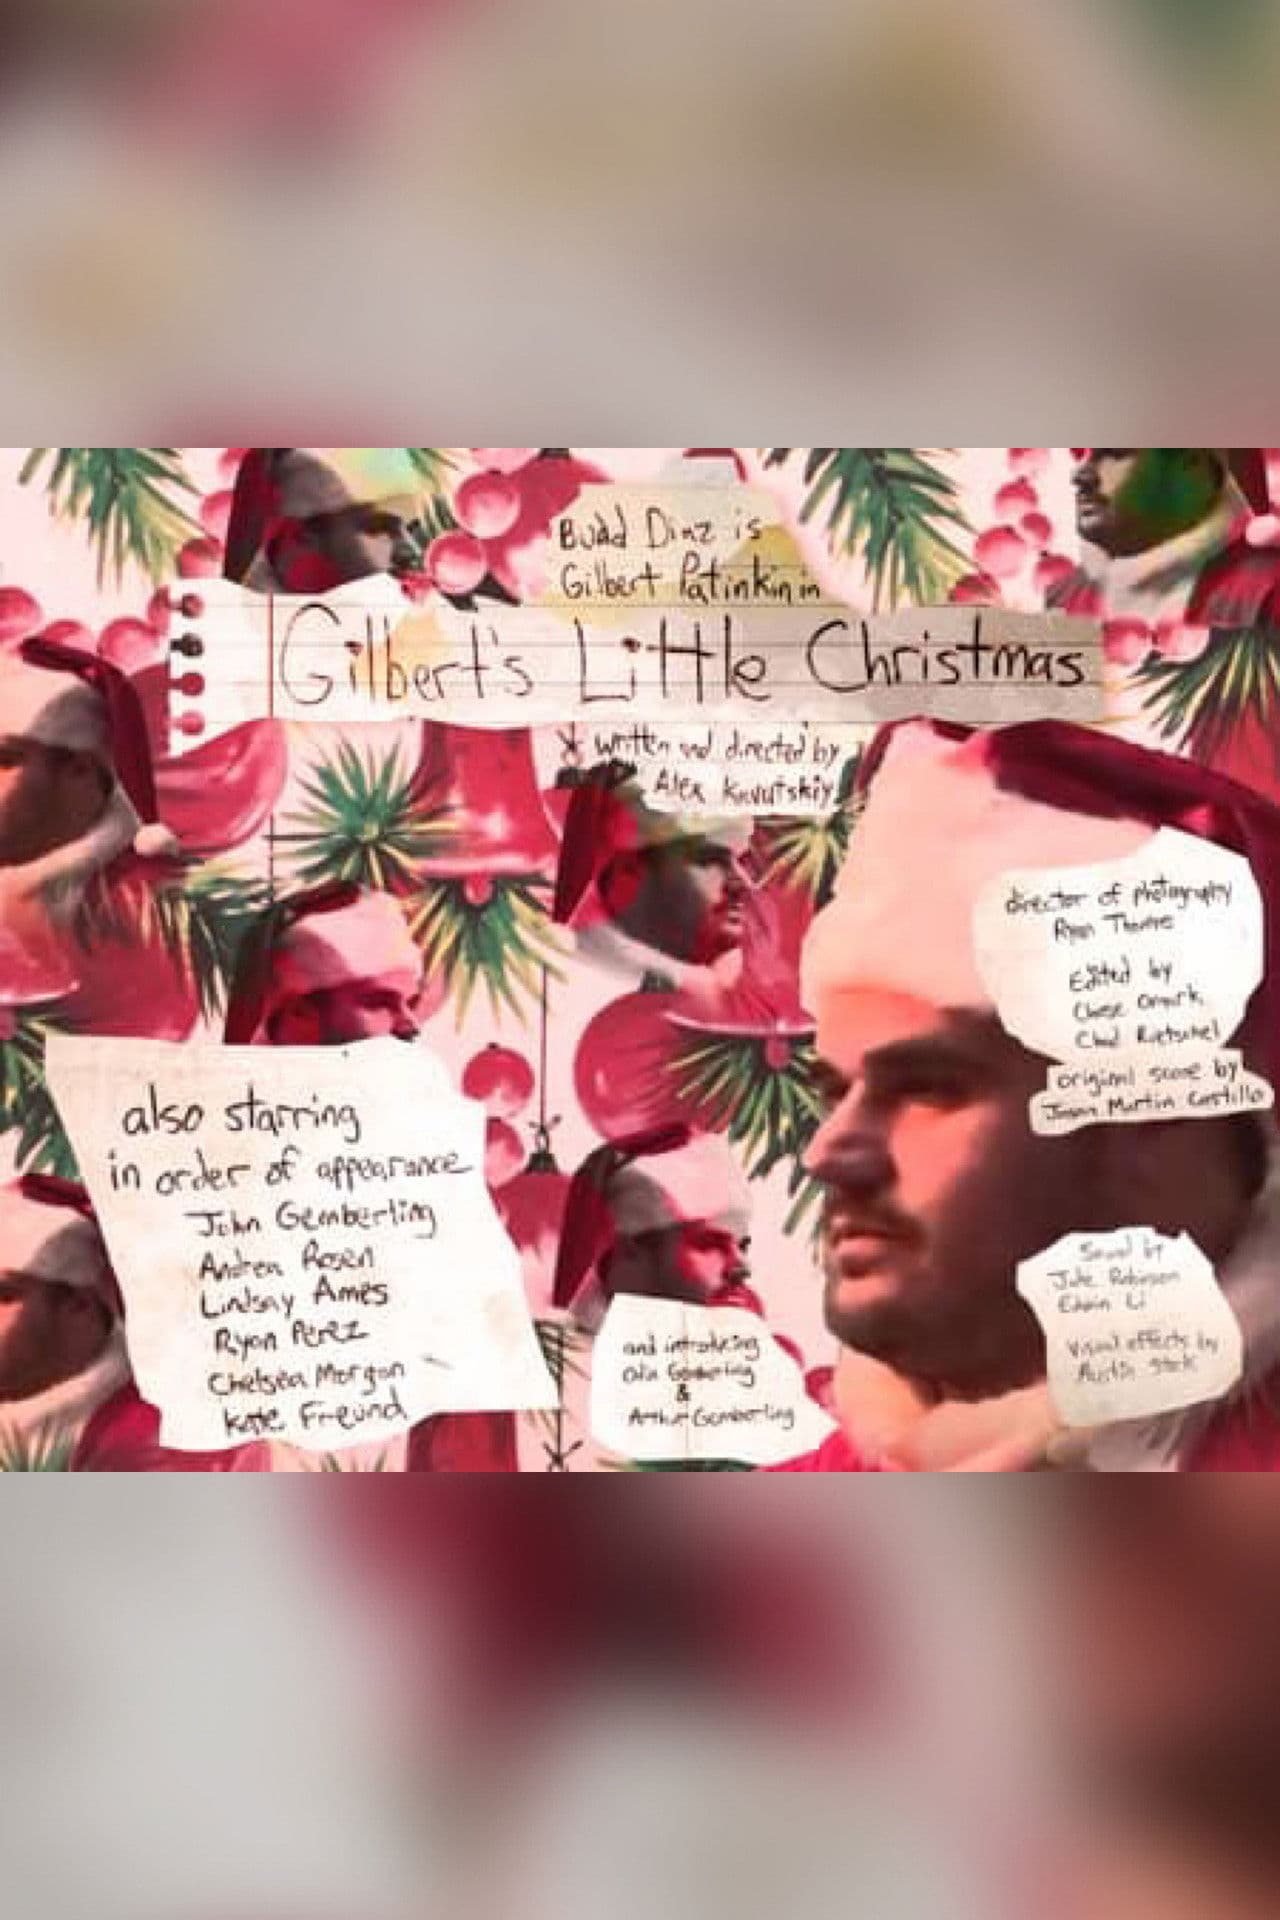 Budd Diaz is
Gilbert Patinkin in
Gilbert's Little Christmas
* written and directed by
Alex Kavutskiy
director of photography
Ryan Thomas
Edited by
Chase
Chad Rietschel
original score by
Jason Martin Castillo
also starring
in order of appearance
John Gemberling
Andrea Rosen
Lindsay Ames
Ryan Perez
Chelsea Morgan
Kate Freund
and introducing
Gemberling
&
Arthur Gemberling
Sound by
Robinson
Edwin Li
visual effects by
Austin